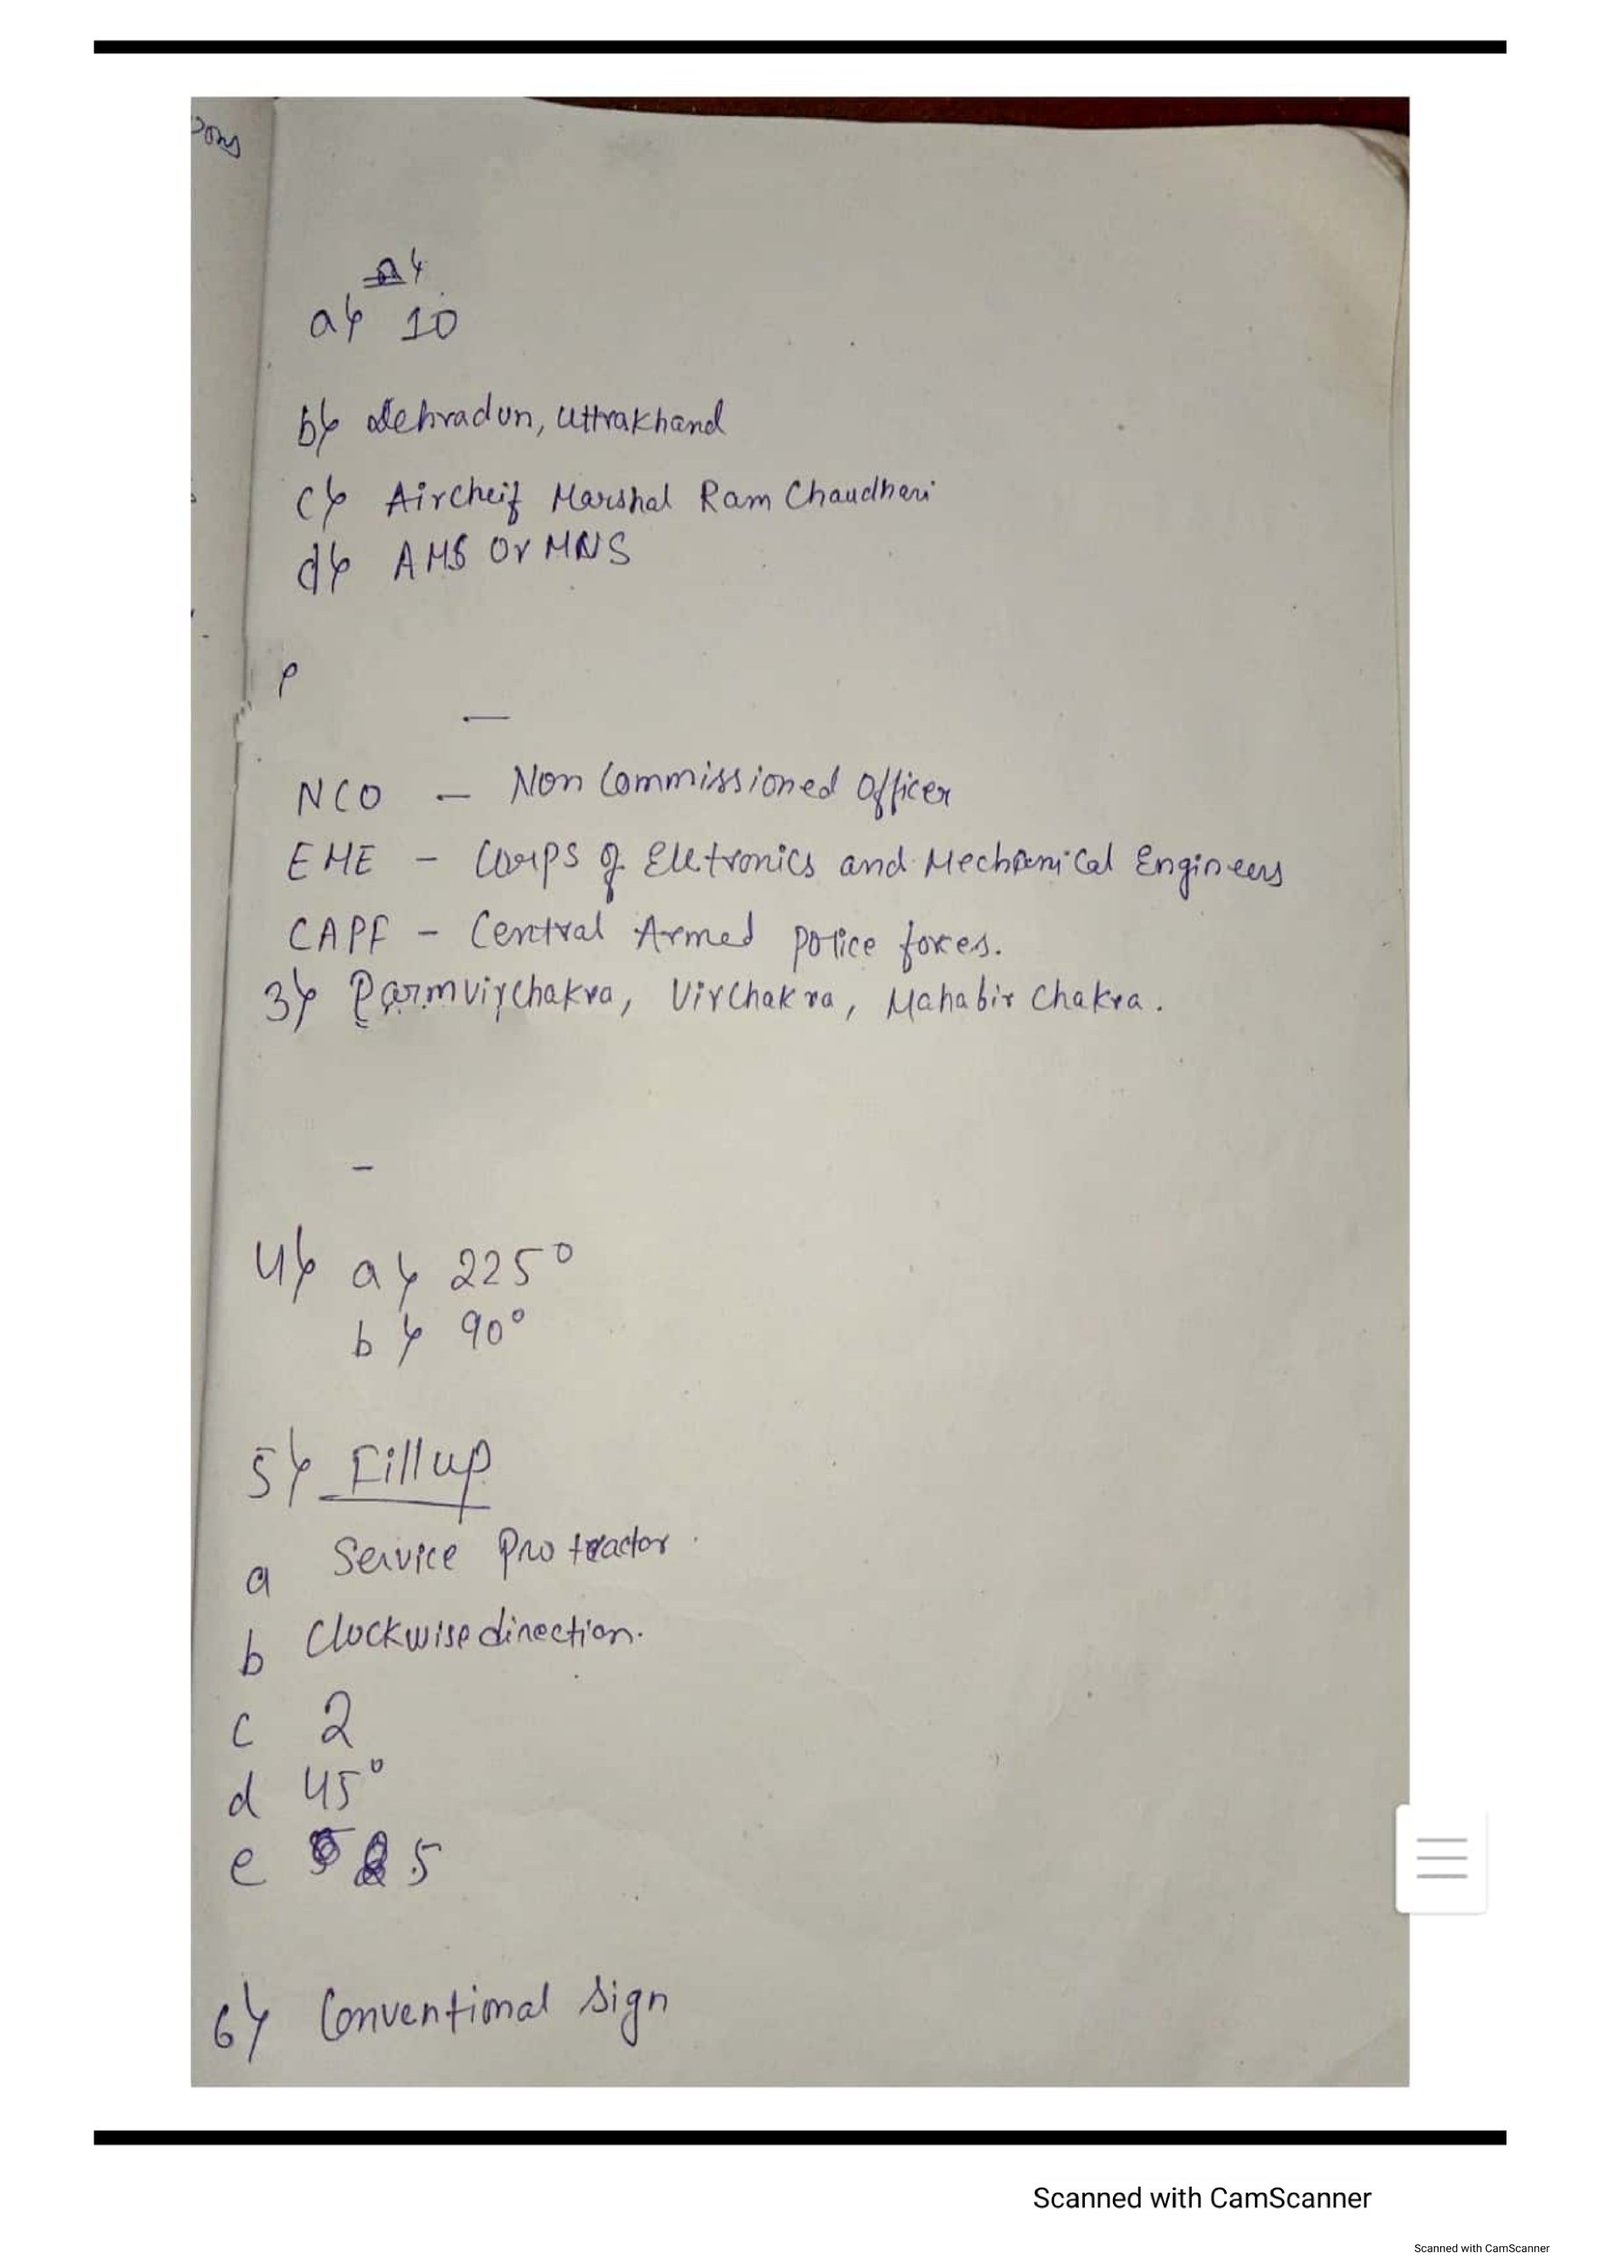 a)
a) 10
b) Dehradun, Uttrakhand
c) Aircheif Marshal Ram Chaudhari
d) AMS Or MNS
NCO - Non Commissioned Officer
EME - Corps of Eletronics and Mechanical Engineers
CAPF - Central Armed police forces.
3) Parmvirchakra, Virchakra, Mahabir Chakra.
4) a) 225°
b) 90°
5) Fill up
a Service Protractor.
b Clockwise direction.
c 2
d 45°
e 5
6) Conventional sign
Scanned with CamScanner
Scanned with CamScanner